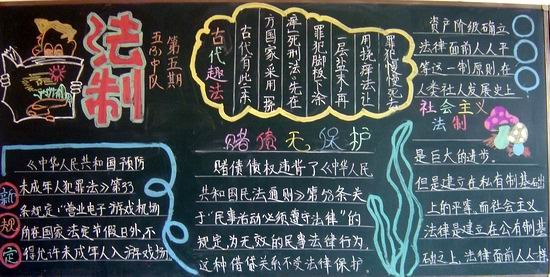 法制
第五期
中队
古代趣法
古代有些东
方国家采用"搔
痒"死刑法,先在
罪犯脚板上涂
一层盐末,再
罪犯慢慢
资产阶级确立
法律面前人人平
等这一制原则,在
社人发展史上
社会主义
法制
是巨大的进步。
但是建立在私有制基础
上的平等,而社会主义
法律是建立在公有制基
础之上,法律面前人人
新规定
《中华人民共和国预防
未成年人犯罪法》第33
条规定:"营业电子游戏机场
所在国家法定节假日外,不
得允许未成年人入游戏场
赌债无保护
赌债债权违背了《中华人民
共和国民法通则》第58条关
于"民事活动必须遵守法律"的
规定,为无效的民事法律行为,
这种借贷关系不受法律保护。